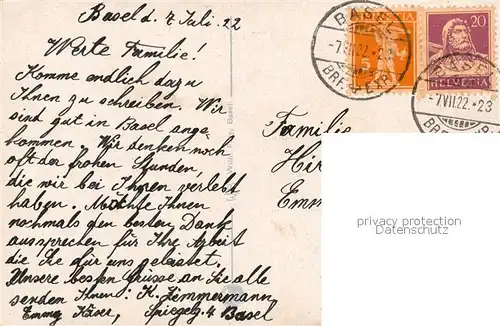 Basel d. 7 Juli. 22
Werte Familie!
Komme endlich dazu
Ihnen zu schreiben. Wir
sind gut in Basel ange
kommen. Wir denken noch
oft der frohen Stunden,
die wir bei Ihnen verlebt
haben. Möchte Ihnen
nochmals den besten Dank
aussprechen für Ihre Arbeit
die Sie für uns geleistet.
Unsere besten Grüsse an Sie alle
senden Ihnen: K. Zimmermann
Emmy Käser, Spiegelg. 4 Basel
BASEL
-7.VII.22.-2
BRF. EXP.
5
20
HELVETIA
BASEL
-7.VII.22.-23
BRF.
Familie
Hir
Emm
privacy protection
Datenschutz
Basel